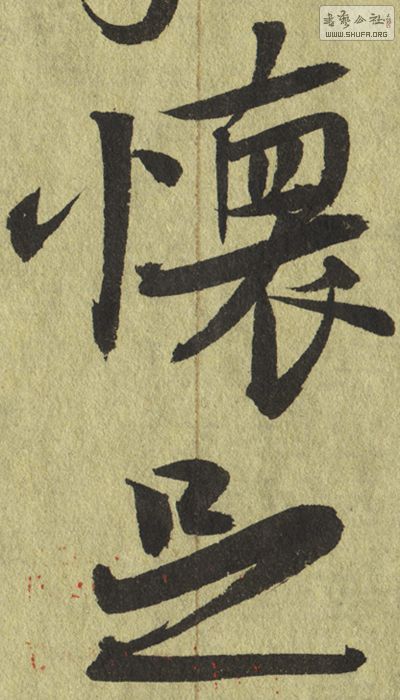 書藝公社
WWW.SHUFA.ORG
懷
足